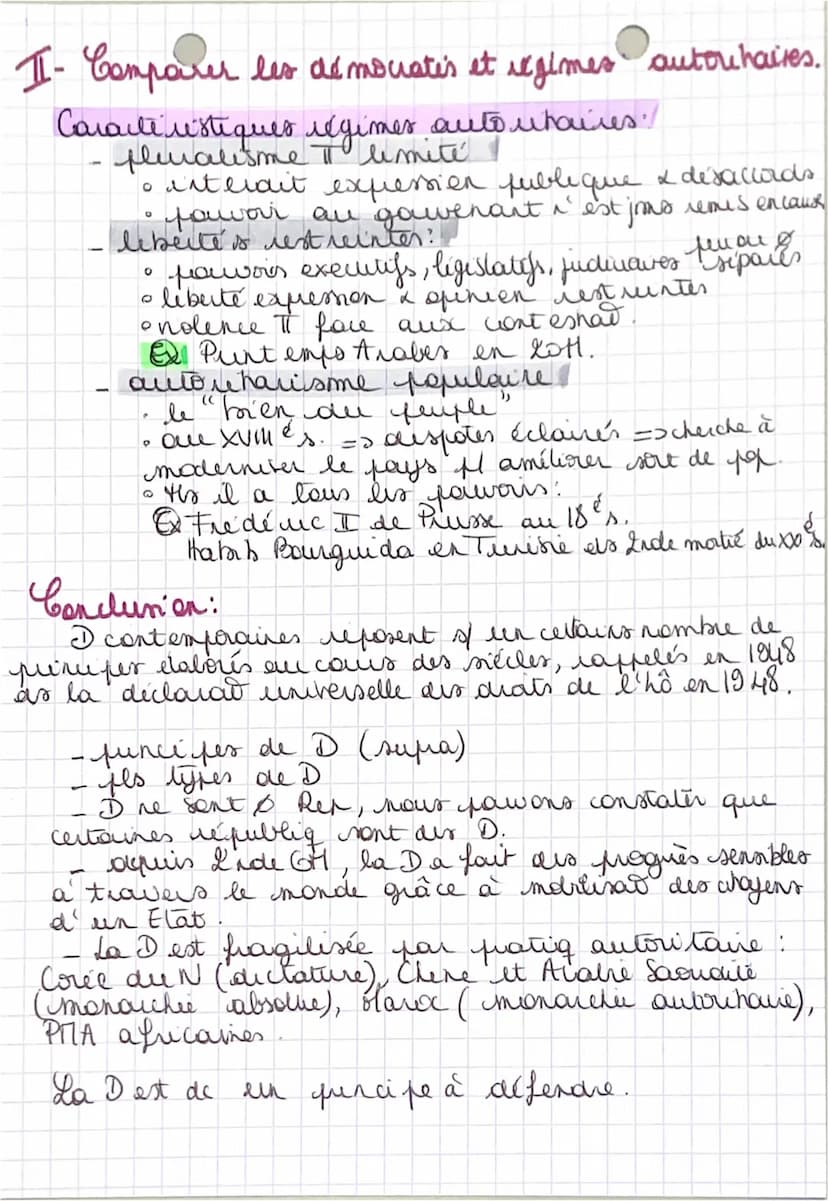 II- Comparer les démocraties et régimes autoritaires.
Caractéristiques régimes autoritaires:
- pluralisme π limité
◦ interdit expression publique & désaccords
◦ pouvoir au gouvernant n'est jms remis en cause
- libertés restreintes:
◦ pouvoirs executifs, législatifs, judiciaires peu ou ∅ séparés
◦ liberté expression & opinion restreintes
◦ violence π face aux contestat°.
Ex Printemps Arabes en 2011.
- autoritarisme populaire
· le "bien du peuple"
◦ au XVIII é s. => despotes éclairés => cherche à
moderniser le pays pr améliorer sort de pop.
◦ Ms il a tous les pouvoirs:
Ex Frédéric II de Prusse au 18 é s.
Habib Bourguida en Tunisie ds 2nde moitié du XX é s.
Conclusion:
D contemporaines reposent s/ un certains nombre de
principes élaborés au cours des siècles, rappelés en 1948
ds la déclarat° universelle des droits de l'hô en 1948.
- principes de D (supra)
- pls types de D
- D ne sont ∅ Rep, nous pouvons constater que
certaines républiq sont des D.
- depuis 2nde GM, la D a fait des progrès sensibles
à travers le monde grâce à mobilisat° des citoyens
d'un Etat.
- La D est fragilisée par pratiq autoritaire :
Corée du N (dictature), Chine et Arabie Saoudite
(monarchie absolue), Maroc (monarchie autoritaire),
PMA africaines.
La D est dc un principe à défendre.